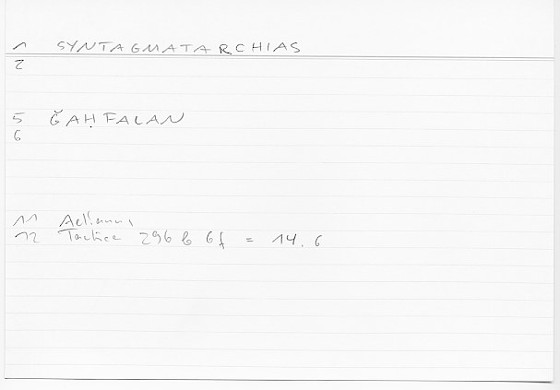 1 SYNTAGMATARCHIAS
2
5 ǦAḤFALAN
6
11 Aelianus
12 Tactica 296 b 6f = 14. 6